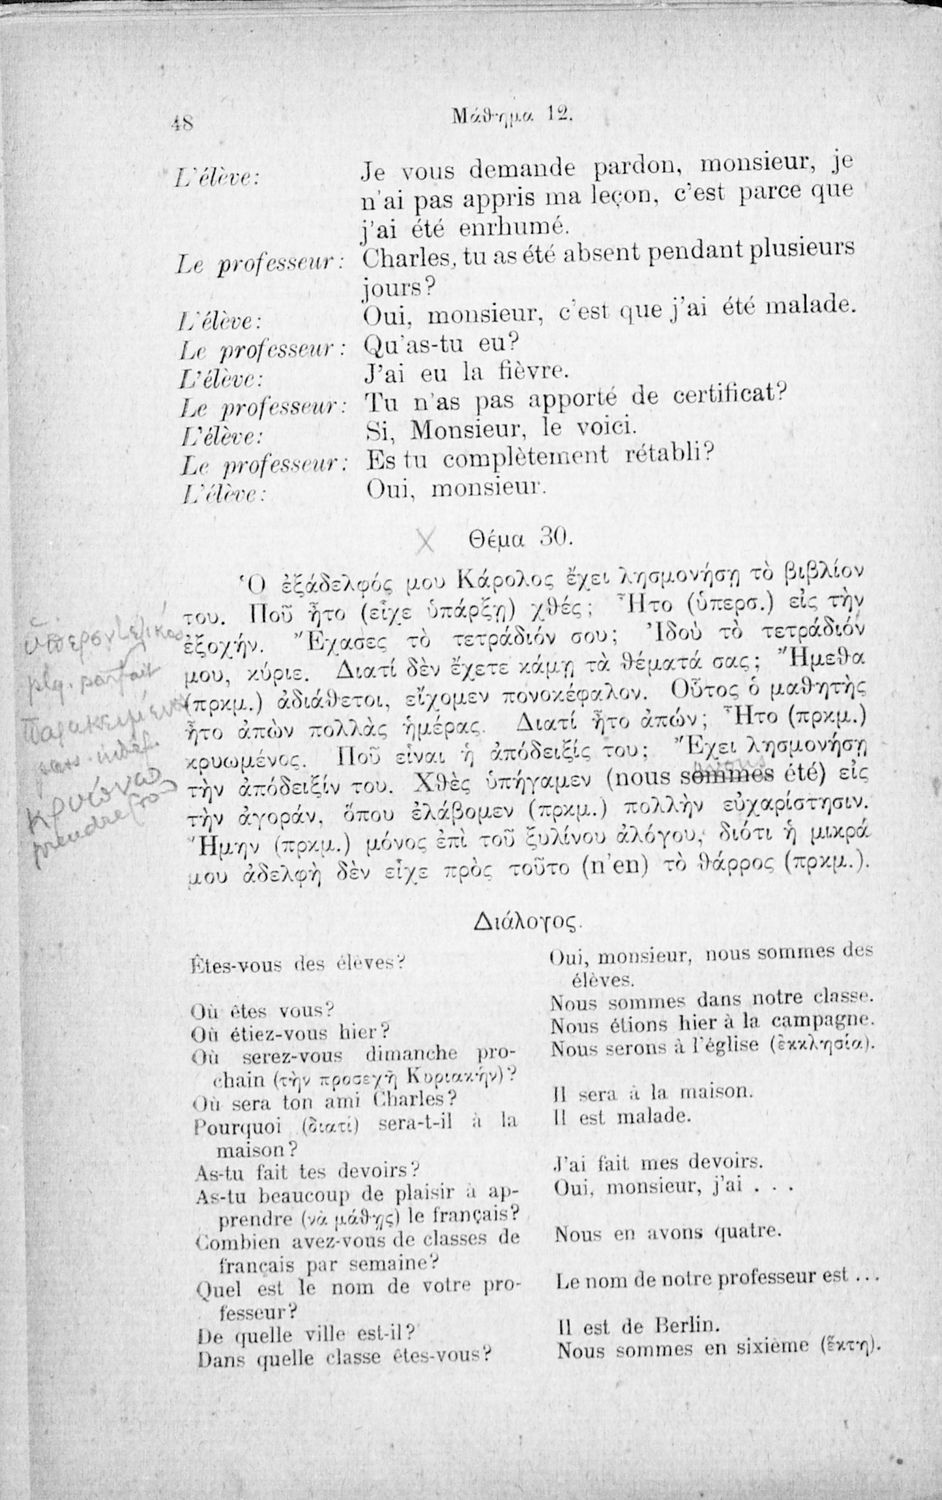 48
Μάθημα 12.
L'élève: Je vous demande pardon, monsieur, je
n'ai pas appris ma leçon, c'est parce que
j'ai été enrhumé.
Le professeur: Charles, tu as été absent pendant plusieurs
jours?
L'élève: Oui, monsieur, c'est que j'ai été malade.
Le professeur: Qu'as-tu eu?
L'élève: J'ai eu la fièvre.
Le professeur: Tu n'as pas apporté de certificat?
L'élève: Si, Monsieur, le voici.
Le professeur: Es tu complètement rétabli?
L'élève: Oui, monsieur.
X Θέμα 30.
Ὁ ἐξάδελφός μου Κάρολος ἔχει λησμονήσῃ τὸ βιβλίον
του. Ποῦ ἦτο (εἶχε ὑπάρξῃ) χθές; Ἦτο (ὑπερσ.) εἰς τὴν
ἐξοχήν. Ἔχασες τὸ τετράδιόν σου; Ἰδοὺ τὸ τετράδιόν
μου, κύριε. Διατί δὲν ἔχετε κάμῃ τὰ θέματά σας; Ἤμεθα
(πρκμ.) ἀδιάθετοι, εἴχομεν πονοκέφαλον. Οὗτος ὁ μαθητὴς
ἦτο ἀπὼν πολλὰς ἡμέρας. Διατί ἦτο ἀπών; Ἦτο (πρκμ.)
κρυωμένος. Ποῦ εἶναι ἡ ἀπόδειξίς του; Ἔχει λησμονήσῃ
τὴν ἀπόδειξίν του. Χθὲς ὑπήγαμεν (nous sommes été) εἰς
τὴν ἀγοράν, ὅπου ἐλάβομεν (πρκμ.) πολλὴν εὐχαρίστησιν.
Ἤμην (πρκμ.) μόνος ἐπὶ τοῦ ξυλίνου ἀλόγου, διότι ἡ μικρά
μου ἀδελφὴ δὲν εἶχε πρὸς τοῦτο (n'en) τὸ θάρρος (πρκμ.).
ὑπερσυντελικος
plq. parfait
Παρακειμένος
pass. indéf.
κρυώνω
prendre froid
avons
Διάλογος.
Êtes-vous des élèves? Oui, monsieur, nous sommes des
élèves.
Où êtes vous? Nous sommes dans notre classe.
Où étiez-vous hier? Nous étions hier à la campagne.
Où serez-vous dimanche pro- Nous serons à l'église (ἐκκλησία).
chain (τὴν προσεχῆ Κυριακήν)?
Où sera ton ami Charles? Il sera à la maison.
Pourquoi (διατί) sera-t-il à la Il est malade.
maison?
As-tu fait tes devoirs? J'ai fait mes devoirs.
As-tu beaucoup de plaisir à ap- Oui, monsieur, j'ai . . .
prendre (νὰ μάθῃς) le français?
Combien avez-vous de classes de Nous en avons quatre.
français par semaine?
Quel est le nom de votre pro- Le nom de notre professeur est ...
fesseur?
De quelle ville est-il? Il est de Berlin.
Dans quelle classe êtes-vous? Nous sommes en sixième (ἕκτη).